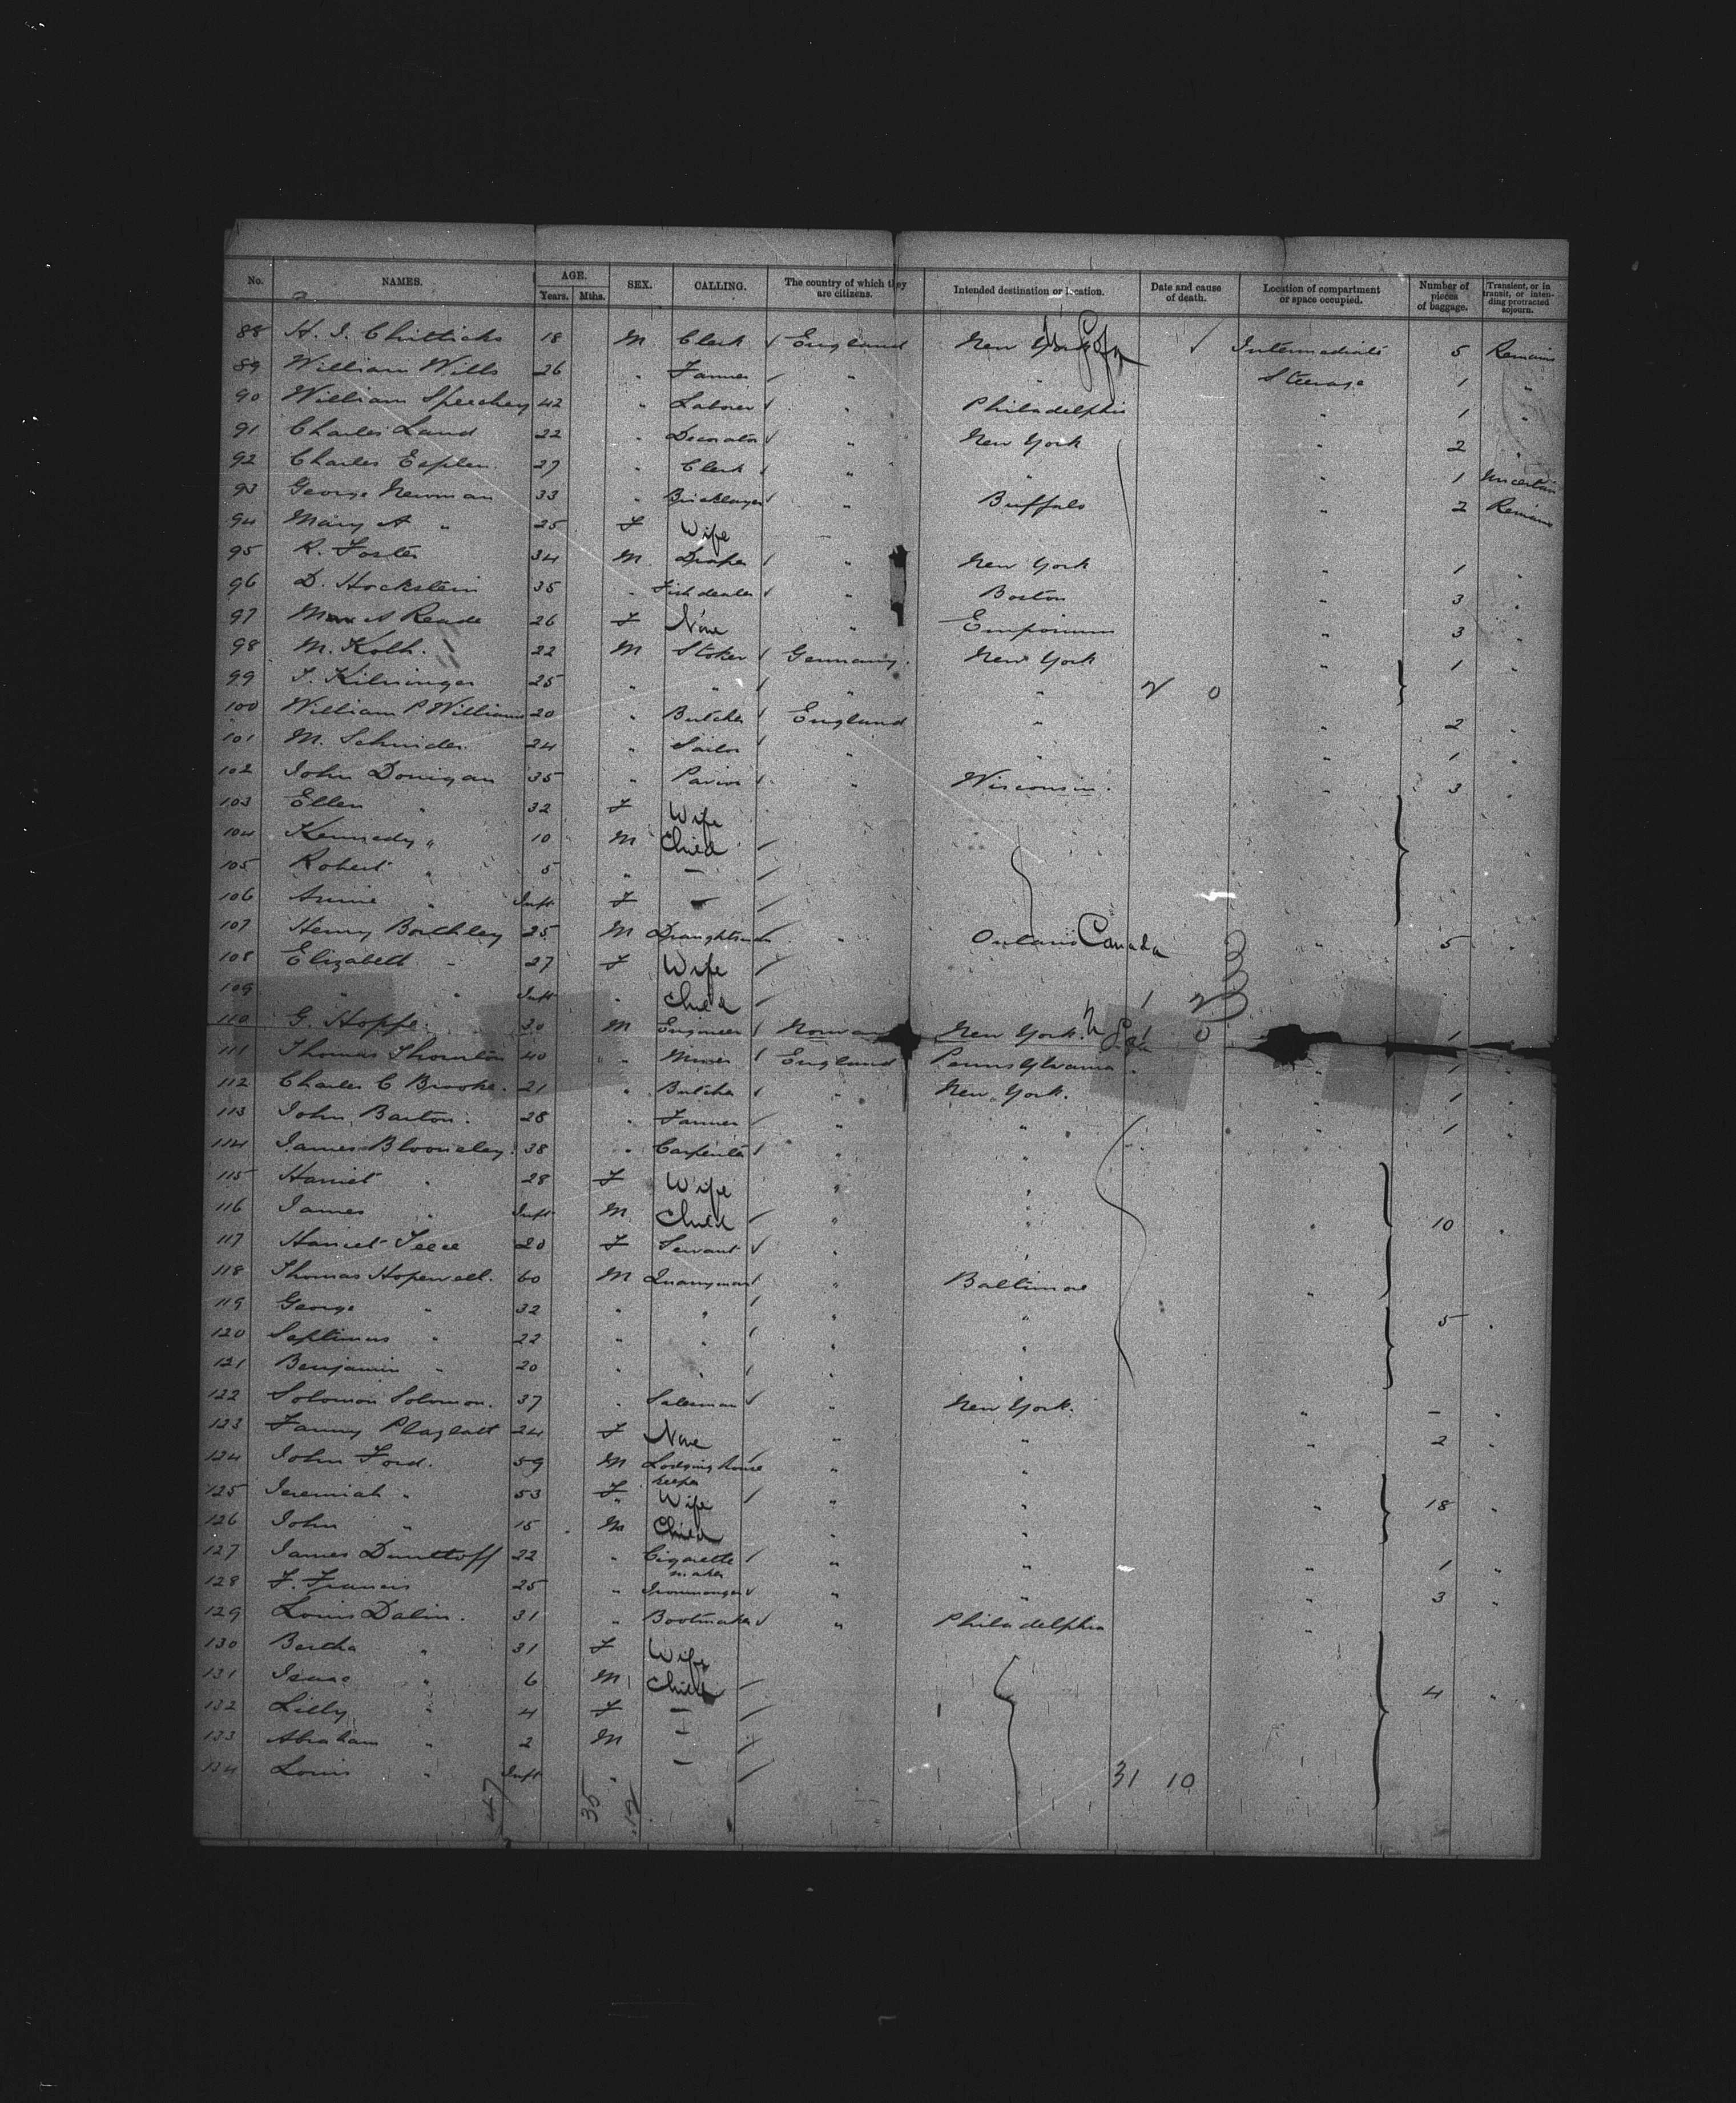 No. NAMES. AGE. Years. Mths. SEX. CALLING. The country of which they are citizens. Intended destination or location. Date and cause of death. Location of compartment or space occupied. Number of pieces of baggage. Transient, or in transit, or intending protracted sojourn.
88 H. J. Chitticks 18 M Clerk England New York Intermediate 5 Remains
89 William Wills 26 " Farmer " " Steerage 1 "
90 William Speechey 42 " Laborer " Philadelphia " 1 "
91 Charles Land 22 " Decorator " New York " 2 "
92 Charles 27 " Clerk " " " 1 Uncertain
93 George Newman 33 " Bricklayer " Buffalo " 2 Remains
94 Mary A " 25 F Wife
95 R. Foster 34 M Draper " New York " 1 "
96 D. Hockstein 35 " Fish dealer " Boston " 3 "
97 A Reade 26 F None " Emporium " 3 "
98 M. Kolb. 22 M Stoker Germany. New York " 1 "
99 25 " " " " 2 0
100 William P Williams 20 " Butcher England " " 2 "
101 M. Schnider 24 " Sailor " " " 1 "
102 John Donigan 35 " Pavior " Wisconsin. " 3 "
103 Ellen " 32 F Wife
104 Kennedy " 10 M Child
105 Robert " 5 " —
106 Annie " Inft F —
107 Henry Bortchley 25 M Draughtsman " Ontario Canada " 5 "
108 Elizabeth " 27 F Wife
109 " " Inft " Child 1 2
110 G. Hoppe. 30 M Engineer Norway New York. 1 0 1
111 Thomas Thornton 40 " Miner England Pennsylvania. " 1 "
112 Charles C Brooke. 21 " Butcher " New York. " 1 "
113 John Barton. 28 " Farmer " " " 1 "
114 James Bloomeley. 38 " Carpenter " "
115 Harriet " 28 F Wife " "
116 James " Inft M Child " " " 10 "
117 Harriet 20 F Servant " "
118 Thomas Hopewell. 60 M Quarryman " Baltimore "
119 George " 32 " " " " 5 "
120 Septimus " 22 " " " "
121 Benjamin " 20 " " " "
122 Solomon Solomon. 37 " Salesman " New York. " — "
123 Fanny 24 F None " " " 2 "
124 John Ford. 59 M Lodging house keeper " "
125 Jeremiah " 53 F Wife " " " 18 "
126 John " 15 M Child " "
127 James 22 " Cigarette maker " " " 1 "
128 F. Francis 25 " Ironmonger " " " 3 "
129 Louis Dalin. 31 " Bootmaker " Philadelphia "
130 Bertha " 31 F Wife
131 Isaac " 6 M Child 4 "
132 Lilly " 4 F —
133 Abraham " 2 M —
134 Louis " Inft " — 31 10
47 35 12